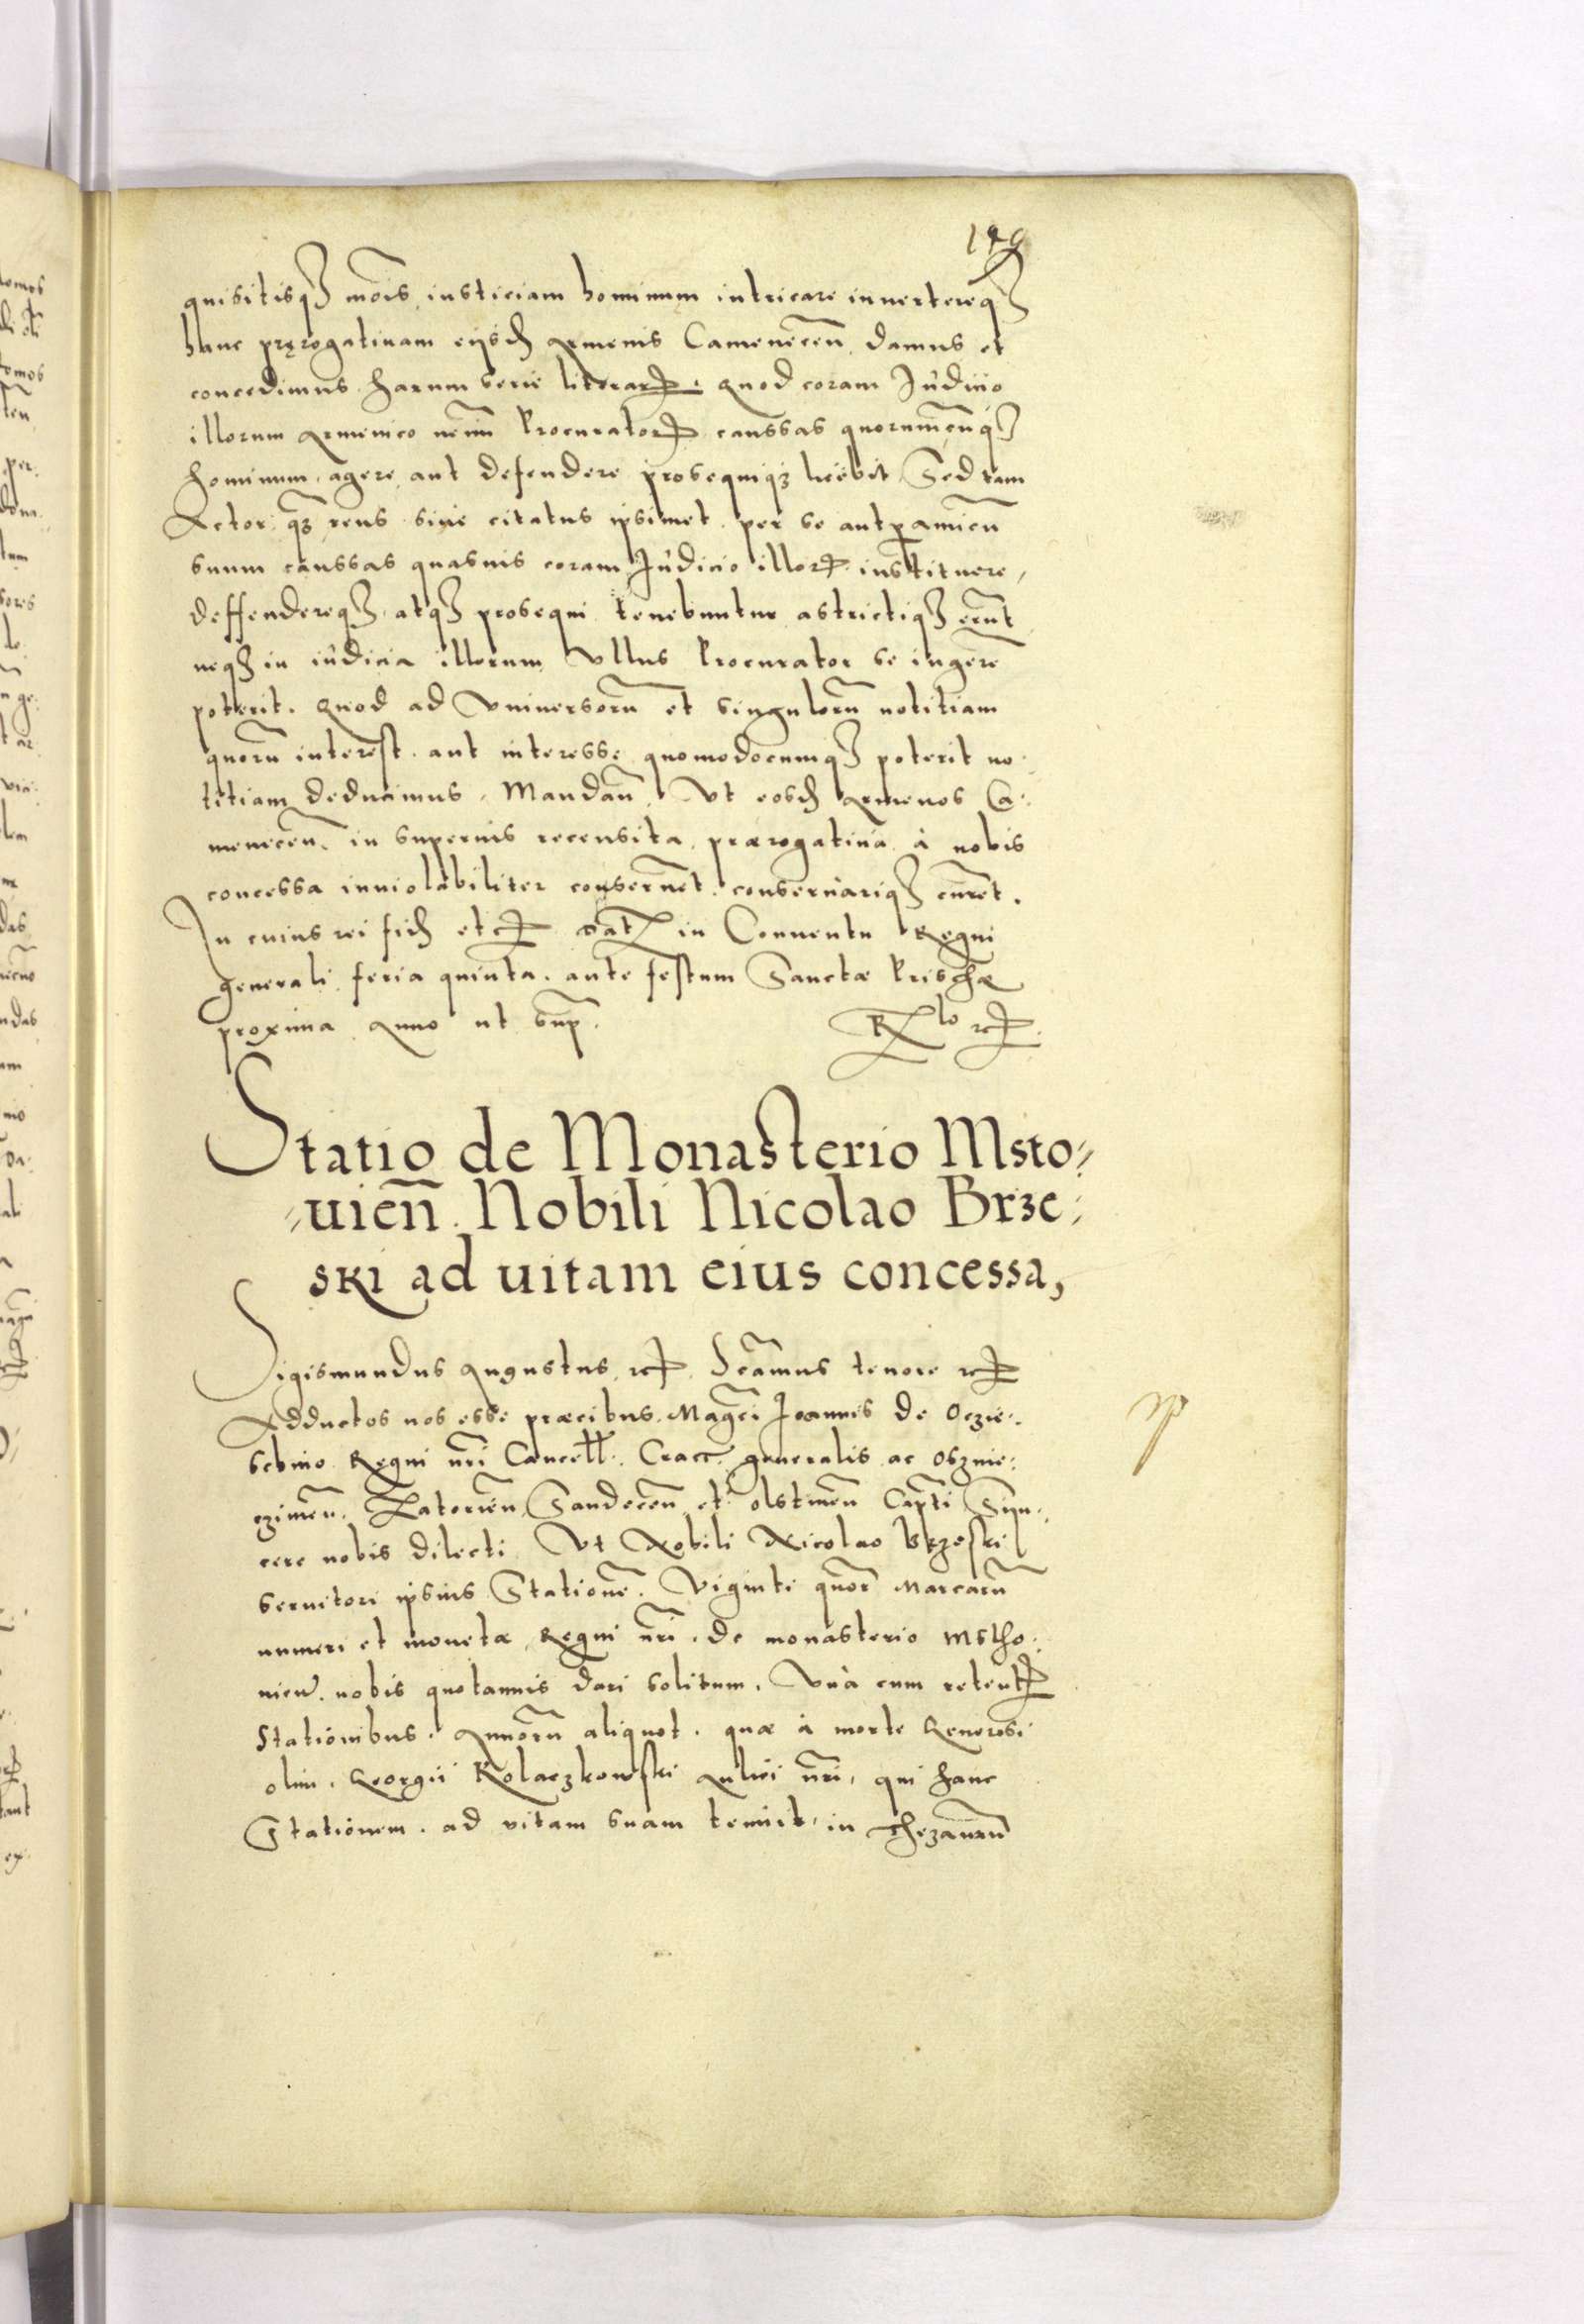 149
quisitisq modis iusticiam hominum intricare inuertereq
hanc pręrogatiuam eijsd Armenis Camenecen̄ damus et
concedimus harum serie literar. Quod coram Iudicio
illorum Armenico nemini Procurator caussas quorumcunq
hominum agere aut defendere prosequiqȝ licebit Sed tam
Actor qȝ reus siue citatus ipsimet per se aut p amicū
suum caussas quasuis coram Iudicio illor instituere,
deffendereq atq prosequi tenebuntur astrictiq erūt
neq in iudicia illorum Vllus Procurator se ingere
poterit. Quod ad Vniuersorū et singulorū notitiam
quorū interest aut interesse quomodocumq poterit no-
titiam deducimus. Mandan̄. Vt eosd Armenos Ca-
menecen̄. in superius recensita prærogatiua à nobis
concessa inuiolabiliter conseruēt conseruariq curēt.
In cuius rei fid etc Dat in Conuentu Regni
generali feria quinta ante festum Sanctæ Priscæ
proxima Anno ut sup. R lo etc
Statio de Monasterio Msto-
-uien̄. Nobili Nicolao Brze-
ski ad uitam eius concessa,
Sigismundus Augustus etc. Scāmus tenore etc
Adductos nos esse præcibus Magci Ioannis de Oczie-
schino Regni nr̄i Cancell. Crac. generalis ac Oszwie-
czimen̄. Zatorien̄ Sandecen̄ et Olstinen̄ Capti Syn-
cere nobis dilecti Vt Nobili Nicolao Brzeski
seruitori ipsius Stationē. Viginti quor Marcarū
numeri et monetæ Regni nr̄i de monasterio Mstho-
uien̄. nobis quotannis dari solitum. Vnà cum retent
Stationibus. Annorū aliquot. quæ à morte Generosi
olim. Georgii Kolaczkowski Aulici nr̄i, qui hanc
Stationem. ad vitam suam tenuit, in Thezaurū